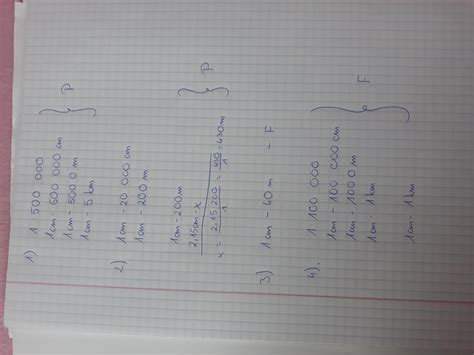 1) 1 500 000
1cm - 500 000 cm
1cm - 5000 m
1cm - 5 km
P
2) 1cm - 20 000 cm
1cm - 200m
1cm - 200m
2,15cm - x
x = 2,15·200 / 1 = / 1 = 430m
P
3) 1cm - 60 m - F
4). 1 100 000
1cm - 100 000 cm
1cm - 1000 m
1cm - 1 km
1cm - 1km
F